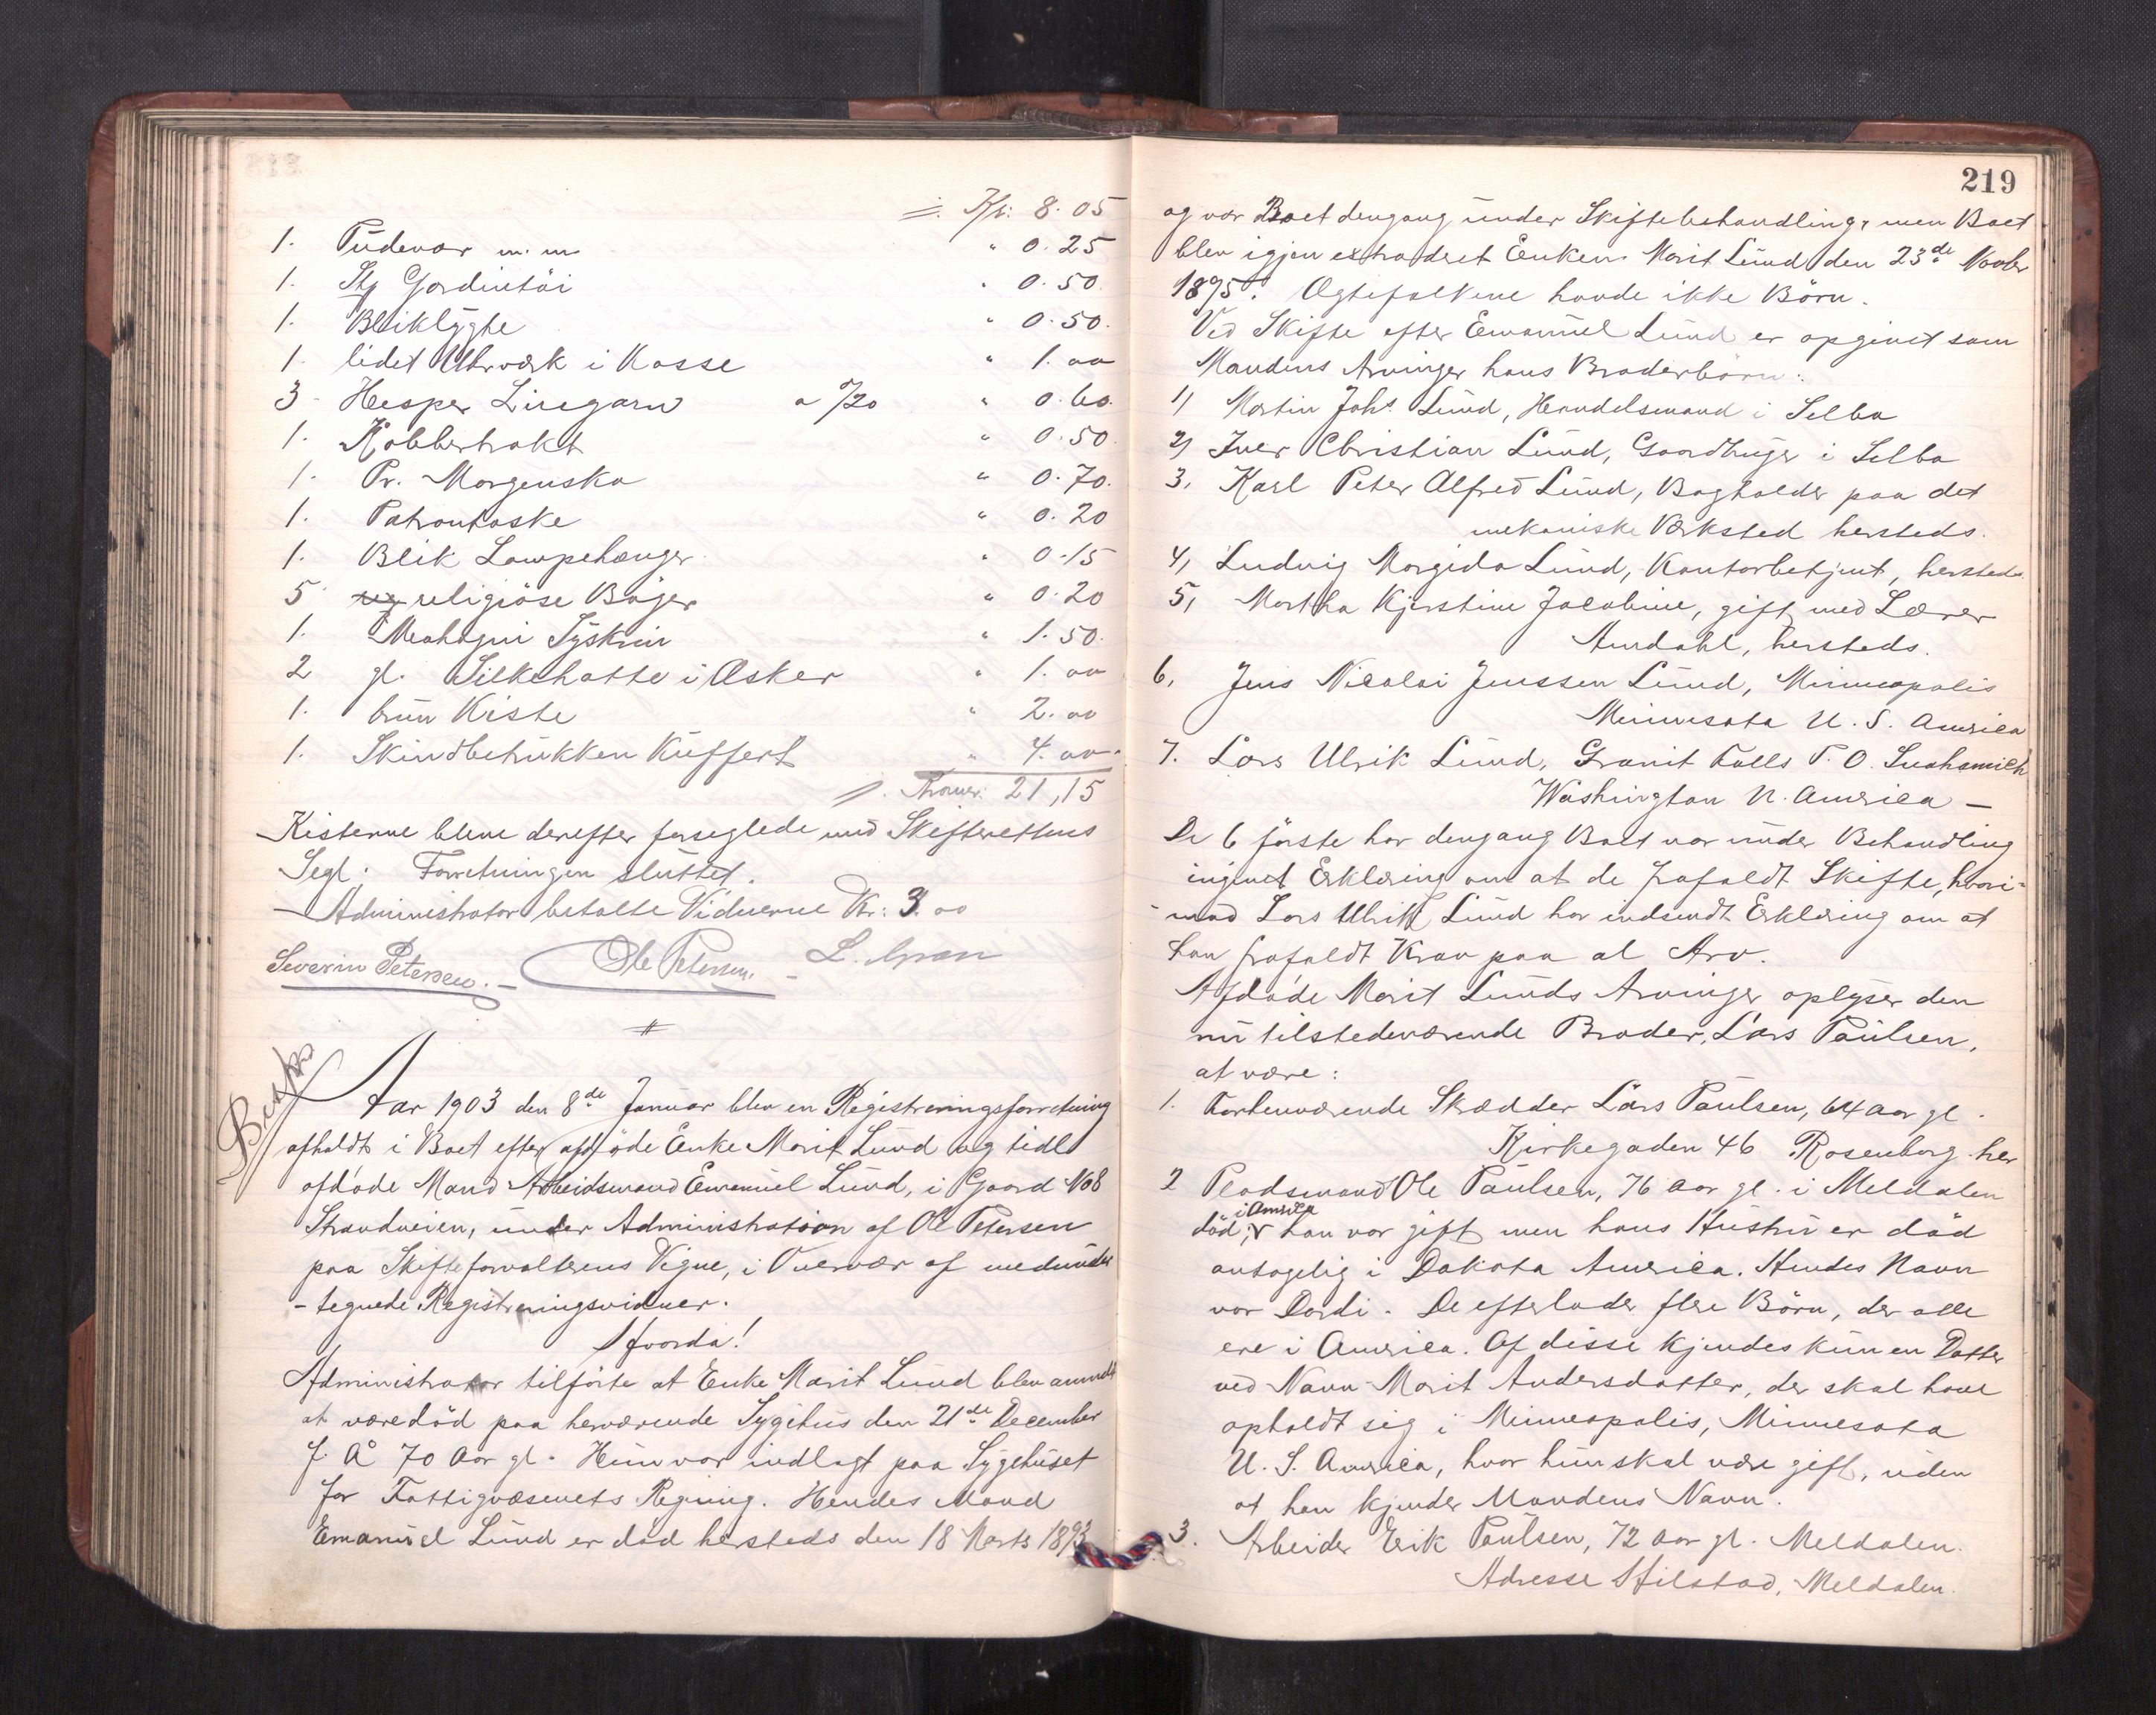 Kr: 8.05
1. Pudevar m.m " 0.25
1. Stg Gardintöi " 0.50
1. Bliklÿgte " 0.50.
1. lidet Uhrværk i Kasse " 1.00
3. Hesper Liegarn a /20 " 0.60.
1. Kobbertrakt " 0.50
1. Pr. Morgensko " 0.70.
1. Patrontaske " 0.20
1. Blik Lampehænger " 0.15
5 religiöse Böger " 0.20
1. Mahogni Sÿskrin " 1.50.
2 gl. Silkehatte i Æsker " 1.00
1. brun Kiste " 2.00
1. Skindbetrukken Kuffert " 4.00.
Kroner 21,15
Kisterne bleve derefter forseglede med Skifterettens
Segl. Forretningen sluttet.
Administrator betalte Vidnerne Kr: 3.00
Severin Petersen. Ole Petersen. L. Gran
Aar 1903 den 8de Januar blev en Registreringsforretning
afholdt i Boet efter afdöde Enke Marit Lund og tidl
afdöde Mand Arbeidsmand Emanuel Lund, i Gaard No 8
Strandveien, under Administration af Ole Petersen
paa Skifteforvalterens Vegne, i Overvær af medunder
-tegnede Registreringsvidner.
Hvorda!
Administrator tilförte at Enke Marit Lund blev anmeldt
at være död paa herværende Sygehus den 21de December
f. A 70 Aar gl. Hun var indlagt paa Sÿgehuset
for Fattigvæsenets Regning. Hendes Mand
Emanuel Lund er död hersteds den 18 Marts 1893
219
og var Boet dengang under Skiftebehandling, men Boet
blev igjen extraderet Enken Marit Lund den 23de Novbr
1895. Ægtefolkene havde ikke Börn.
Ved Skifte efter Emanuel Lund er opgivet som
Mandens Arvinger hans Broderbörn:
1) Martin Johs Lund, Handelsmand i Selbo
2) Iver Christian Lund, Gaardbruger i Selbo
3, Karl Peter Alfred Lund, Bogholder paa det
mekaniske Værksted hersteds.
4, Ludvig Margido Lund, Kontorbetjent, hersteds
5, Martha Kjerstine Jacobine, gift med Lærer
Amdahl, hersteds.
6, Jens Nicolai Jenssen Lund, Minneapolis
Minnesota U.S. America
7. Lars Ulrik Lund, Granit Falls P.O. Snohomish
Washington N. America –
De 6 förste har dengang Boet var under Behandling
ingivet Erklæring om at de frafaldt Skifte, hvori-
mod Lars Ulrik Lund har indsendt Erklæring om at
han frafaldt Krav paa al Arv.
Afdöde Marit Lunds Arvinger oplyser den
nu tilstedeværende Broder, Lars Paulsen,
at være:
1. Forhenværende Skrædder Lars Paulsen, 64 aar gl.
Kirkegaden 46 Rosenborg her
2 Pladsmand Ole Paulsen, 76 aar gl. i Meldalen
i America
död; han var gift men hans Hustru er död
antagelig i Dakota America. Hendes Navn
var Dordi. De efterlader flere Börn, der alle
ere i America. Af disse kjendes kun en Datter
ved Navn Marit Andersdatter, der skal have
opholdt sig i Minneapolis, Minnesota
U.S. America, hvor hun skal være gift, uden
at han kjender Mandens Navn.
3. Arbeider Erik Paulsen, 72 aar gl. Meldalen.
Adresse Stilstad, Meldalen.